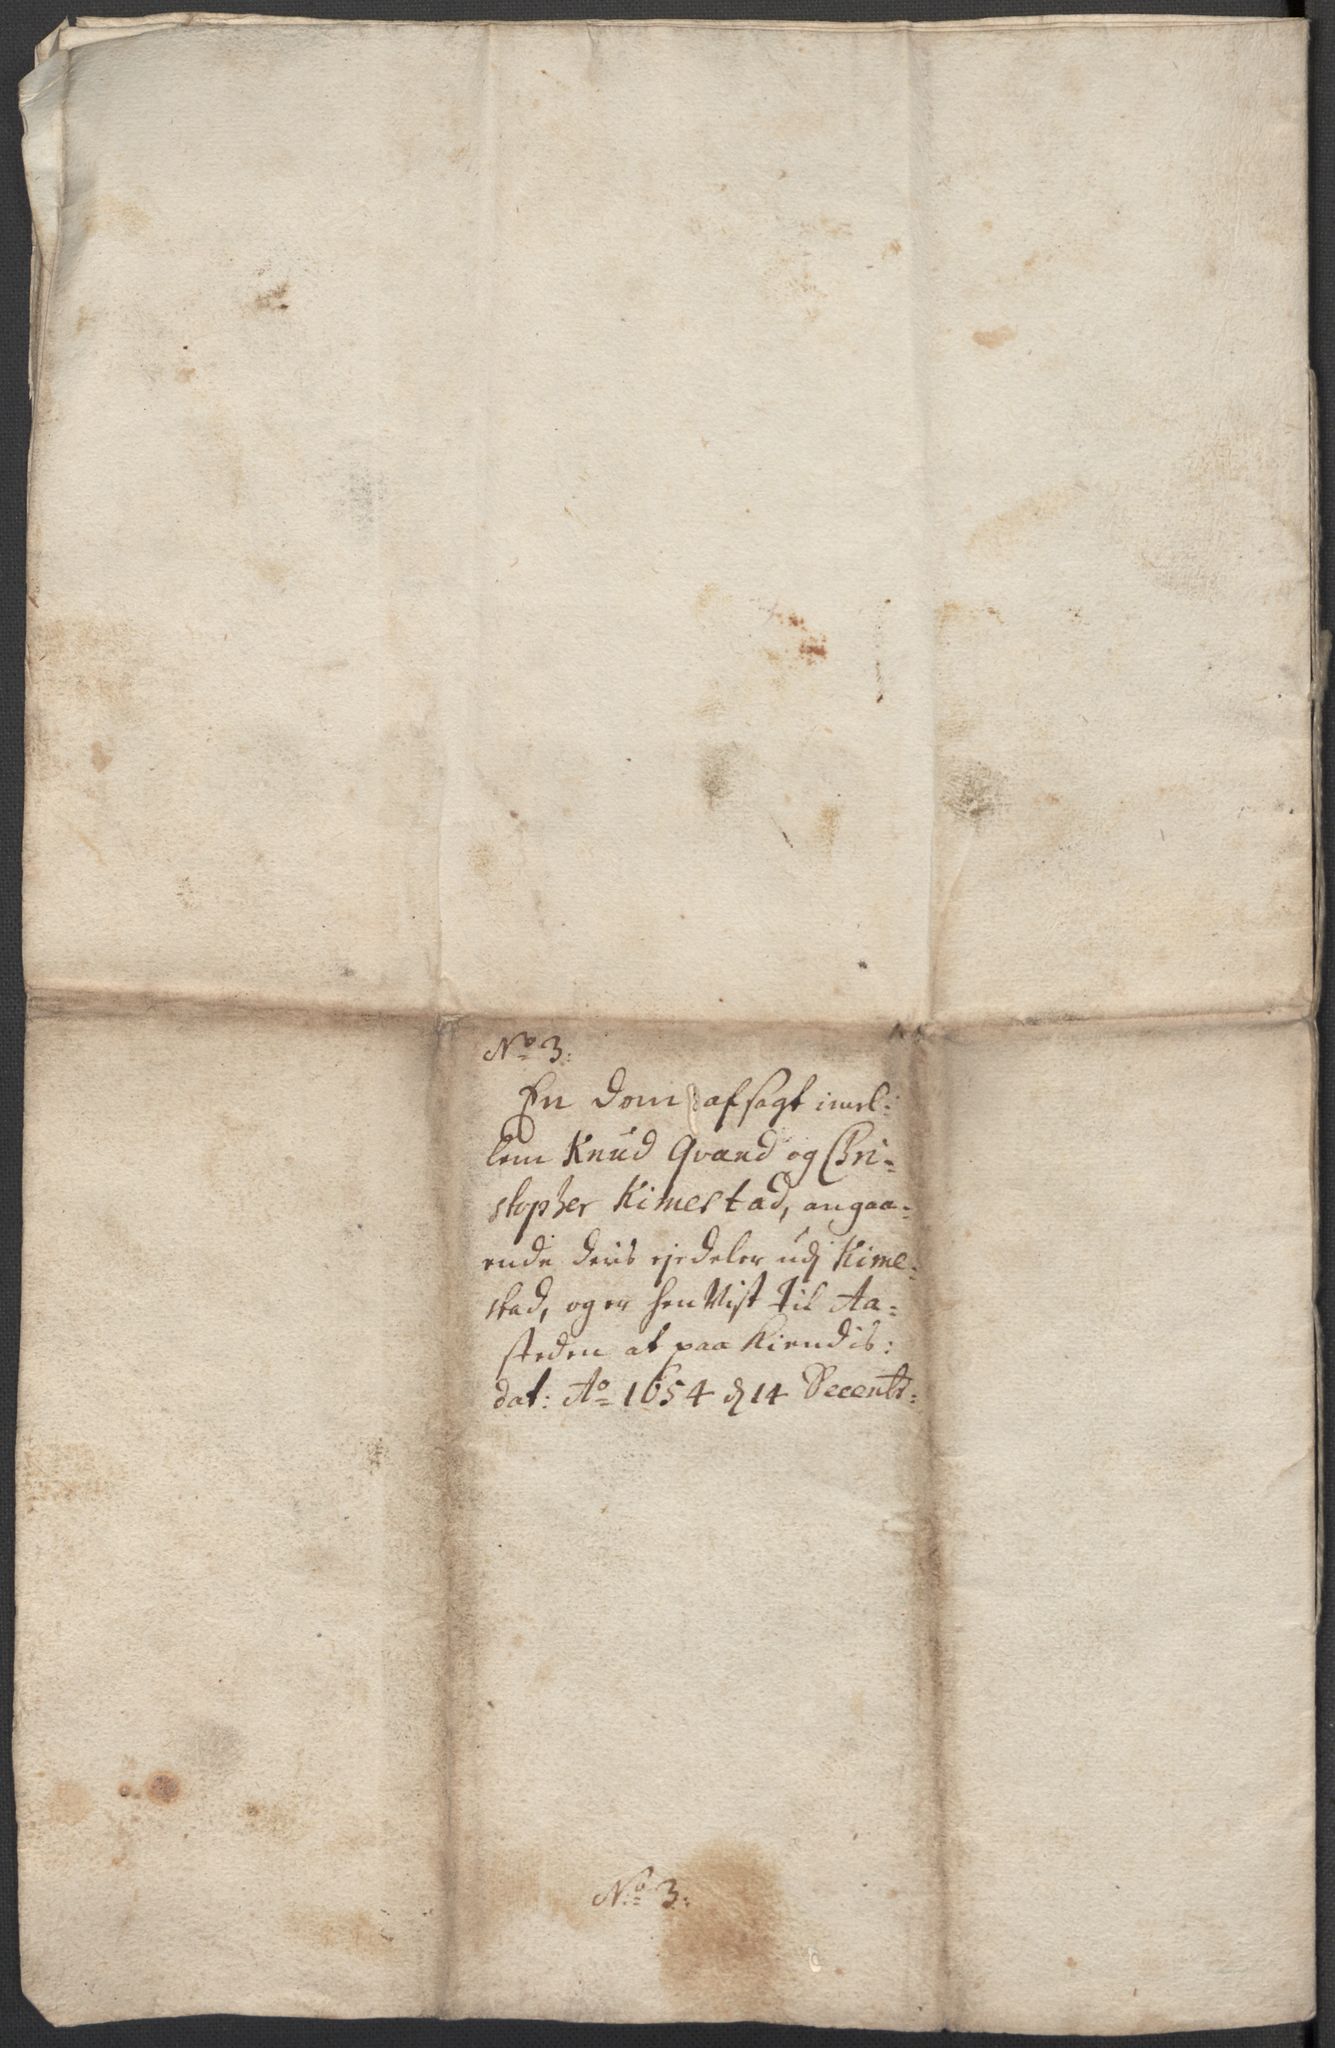 No 3:
En Dom afsagt imel:
lem Knud Qvand og Chri=
stopher Kimestad, angaa=
ende deris ejedeler udj Kime=
stad, og er hen Vist til Aa=
steden at paa Kiendis:
dat: Ao 1654 d 14 Decembr:
No 3: